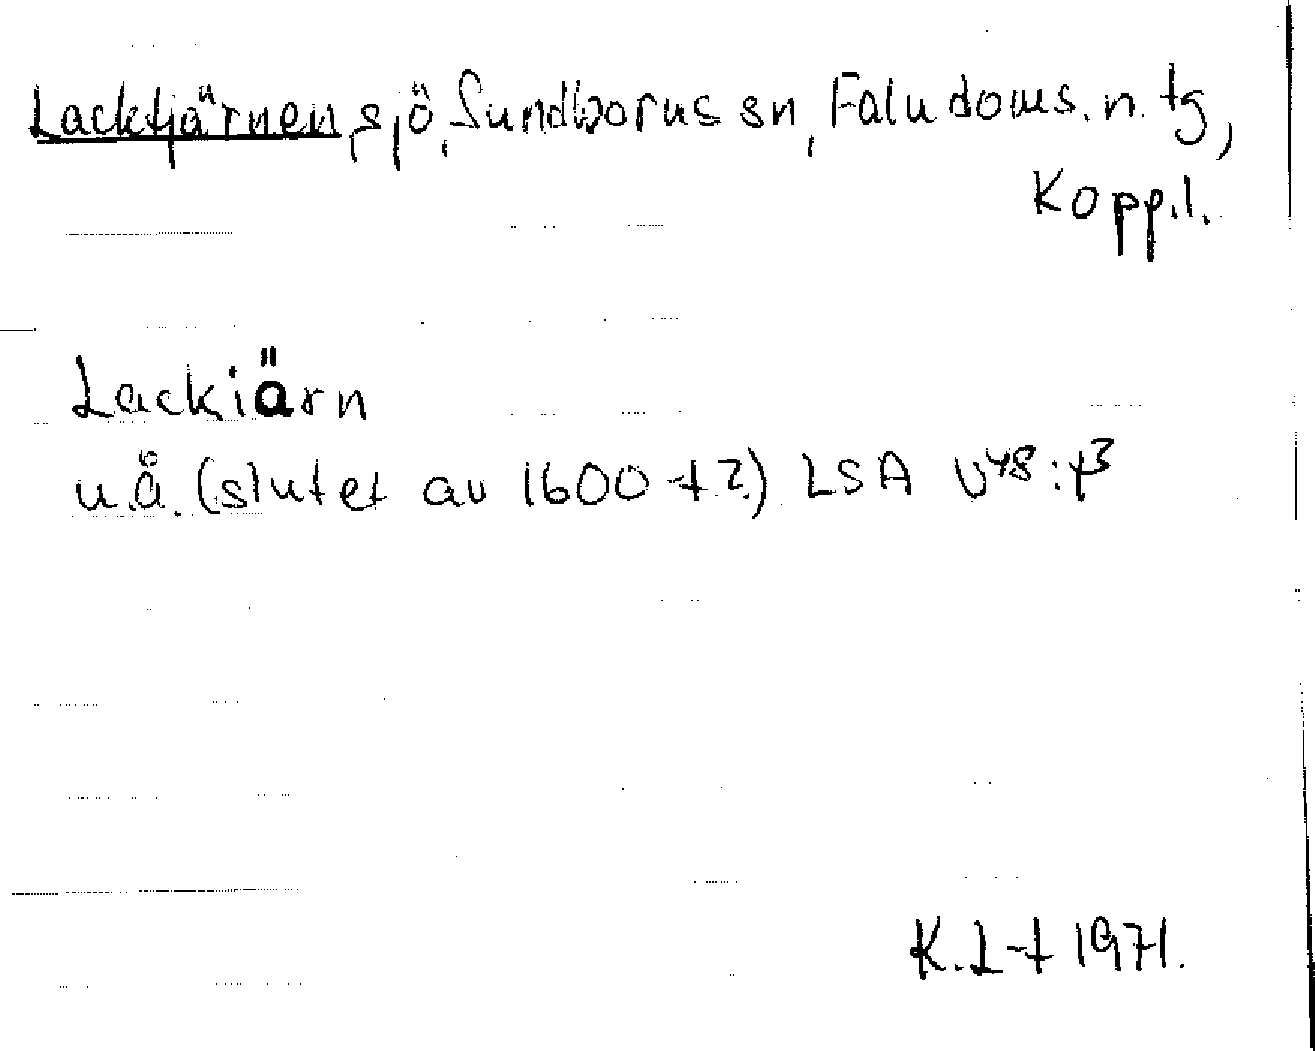 Lacktjärnen, sjö, Sundborns sn, Falu doms. n. tg,
Kopp.l.
Lackiärn
u.å. (slutet av 1600-t?) LSA U48:
K.L-t 1971.